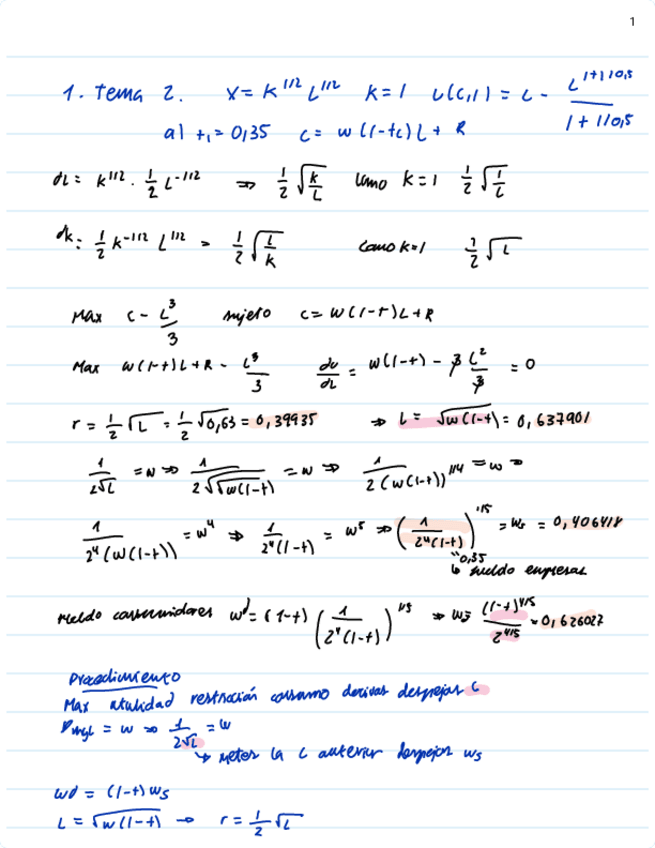 1
1. Tema 2. X = K^{1/2} L^{1/2} K=1 U(C,L) = C - L^{1+1/0,5} / 1+1/0,5
a) t_1 = 0,35 C = w(1-tc)L + R
dL: K^{1/2} · 1/2 L^{-1/2} ⇒ 1/2 √(K/L) Como K=1 1/2 √(1/L)
dk: 1/2 K^{-1/2} L^{1/2} = 1/2 √(L/K) Como K=1 1/2 √L
Max C - L^3/3 sujeto C = W(1-t)L+R
Max W(1-t)L+R - L^3/3 du/dL = W(1-t) - 3 L^2/3 = 0
r = 1/2 √L = 1/2 √0,63 = 0,39935 ⇒ L = √W(1-t) = 0,637901
1/2√L = W ⇒ 1/2√√W(1-t) = W ⇒ 1/2(W(1-t))^{1/4} = W ⇒
1/2^4(W(1-t)) = W^4 ⇒ 1/2^4(1-t) = W^5 ⇒ (1/2^4(1-t))^{1/5} = Ws = 0,406418
"0,35
↳ sueldo empresas
sueldo consumidores W^d = (1-t) (1/2^4(1-t))^{1/5} ⇒ W = (1-t)^{4/5}/2^{4/5} = 0,626027
Procedimiento
Max utilidad restricción consumo derivas despejas L
Pmgl = W ⇒ 1/2√L = W
↳ Metes la L anterior despejas Ws
Wd = (1-t) Ws
L = √W(1-t) → r = 1/2 √L